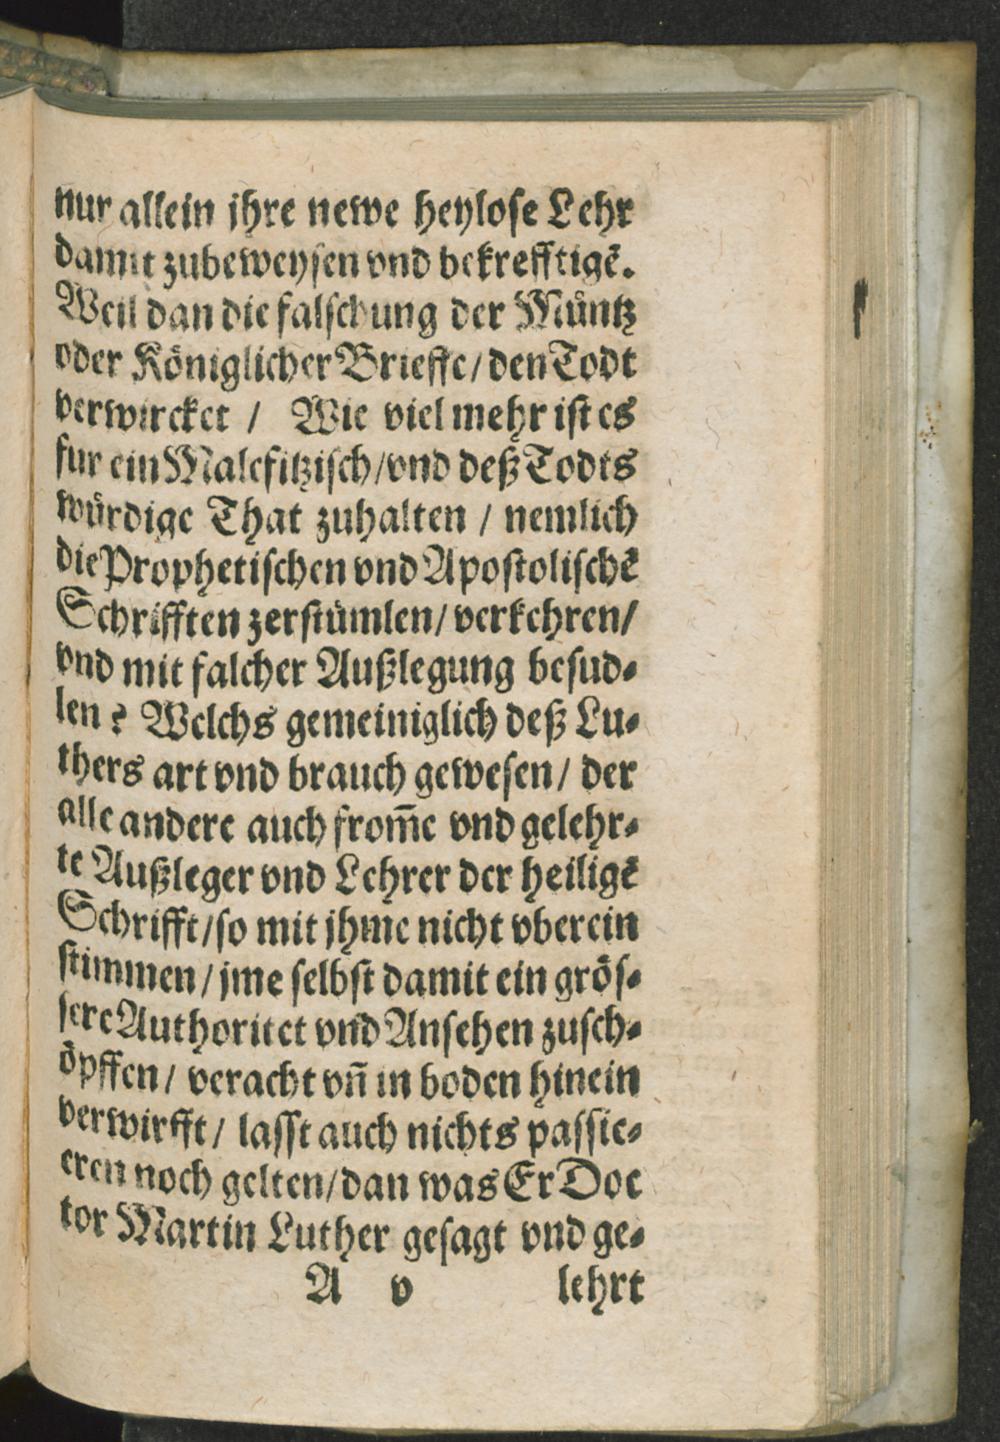 nur allein jhre newe heylose Lehr
damit zubeweysen vnd bekrefftigẽ.
Weil dan die falschung der Müntz
oder Königlicher Brieffe / den Todt
verwircket / Wie viel mehr ist es
fur ein Malefitzisch / vnd deß Todts
würdige That zuhalten / nemlich
die Prophetischen vnd Apostolischẽ
Schrifften zerstümlen / verkehren /
vnd mit falcher Außlegung besud⸗
len? Welchs gemeiniglich deß Lu⸗
thers art vnd brauch gewesen / der
alle andere auch from̃e vnd gelehr⸗
te Außleger vnd Lehrer der heiligẽ
Schrifft / so mit jhme nicht vberein
stimmen / jme selbst damit ein grös⸗
sere Authoritet vnd Ansehen zusch⸗
öpffen / veracht vñ in boden hinein
verwirfft / lasst auch nichts passie⸗
eren noch gelten / dan was Er Doc
tor Martin Luther gesagt vnd ge⸗
A v lehrt